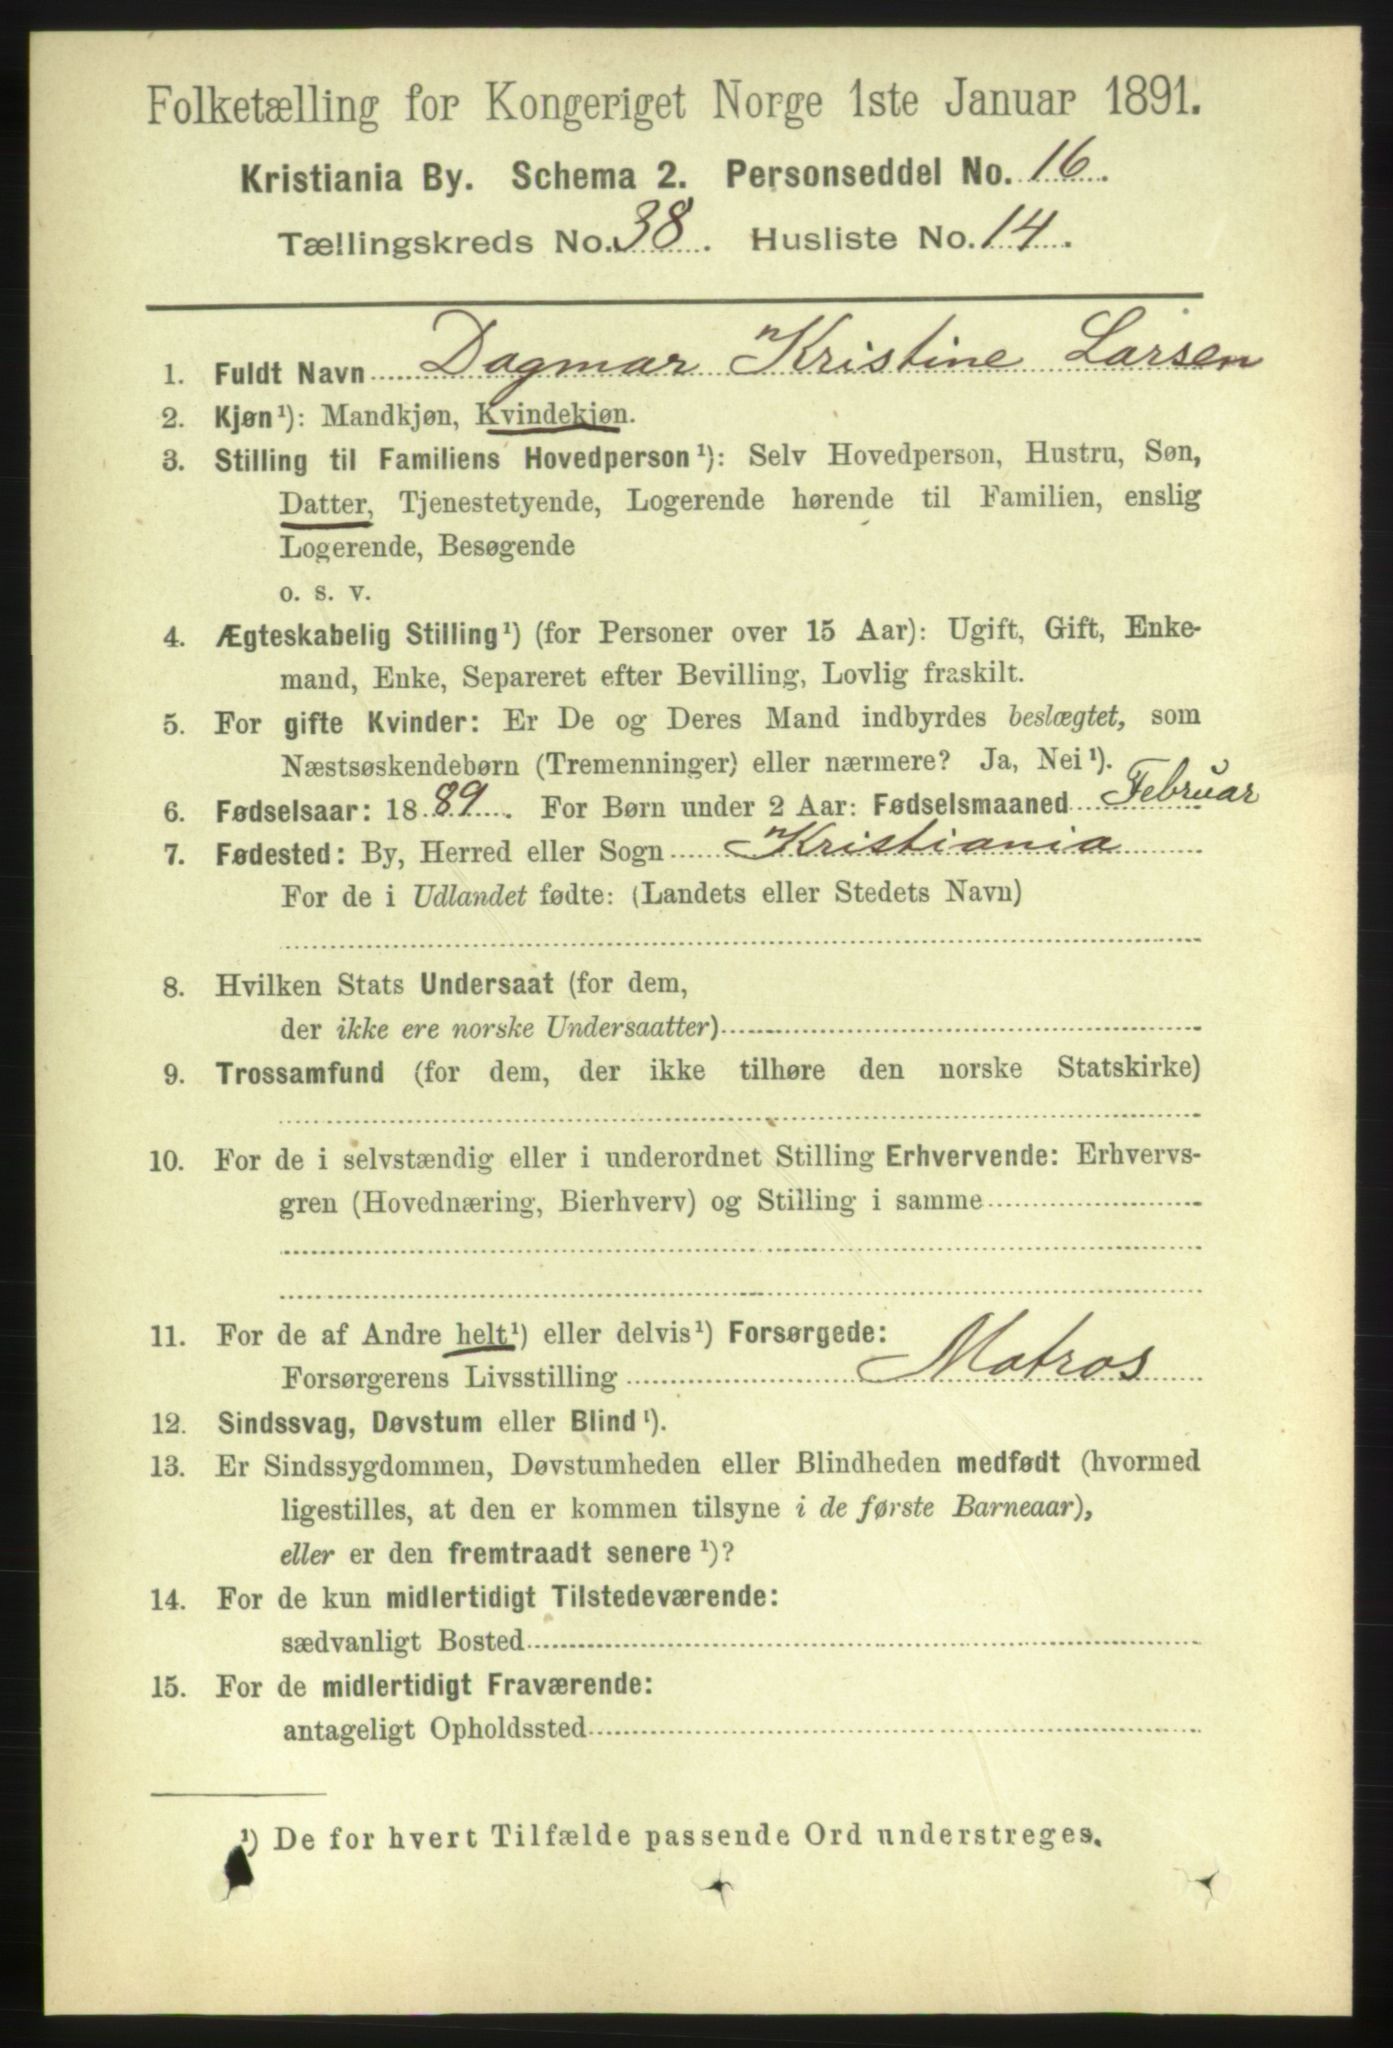 Folketælling for Kongeriget Norge 1ste Januar 1891.
Kristiania By. Schema 2. Personseddel No. 16.
Tællingskreds No. 38. Husliste No. 14.
1. Fuldt Navn Dagmar Kristine Larsen
2. Kjøn¹): Mandkjøn, Kvindekjøn.
3. Stilling til Familiens Hovedperson¹): Selv Hovedperson, Hustru, Søn,
Datter, Tjenestetyende, Logerende hørende til Familien, enslig
Logerende, Besøgende
o. s. v.
4. Ægteskabelig Stilling¹) (for Personer over 15 Aar): Ugift, Gift, Enke-
mand, Enke, Separeret efter Bevilling, Lovlig fraskilt.
5. For gifte Kvinder: Er De og Deres Mand indbyrdes beslægtet, som
Næstsøskendebørn (Tremenninger) eller nærmere? Ja, Nei¹).
6. Fødselsaar: 1889. For Børn under 2 Aar: Fødselsmaaned Februar
7. Fødested: By, Herred eller Sogn Kristiania
For de i Udlandet fødte: (Landets eller Stedets Navn)
8. Hvilken Stats Undersaat (for dem,
der ikke ere norske Undersaatter)
9. Trossamfund (for dem, der ikke tilhøre den norske Statskirke)
10. For de i selvstændig eller i underordnet Stilling Erhvervende: Erhvervs-
gren (Hovednæring, Bierhverv) og Stilling i samme
11. For de af Andre helt¹) eller delvis¹) Forsørgede:
Forsørgerens Livsstilling Matros
12. Sindssvag, Døvstum eller Blind¹).
13. Er Sindssygdommen, Døvstumheden eller Blindheden medfødt (hvormed
ligestilles, at den er kommen tilsyne i de første Barneaar),
eller er den fremtraadt senere¹)?
14. For de kun midlertidigt Tilstedeværende:
sædvanligt Bosted
15. For de midlertidigt Fraværende:
antageligt Opholdssted
¹) De for hvert Tilfælde passende Ord understreges.